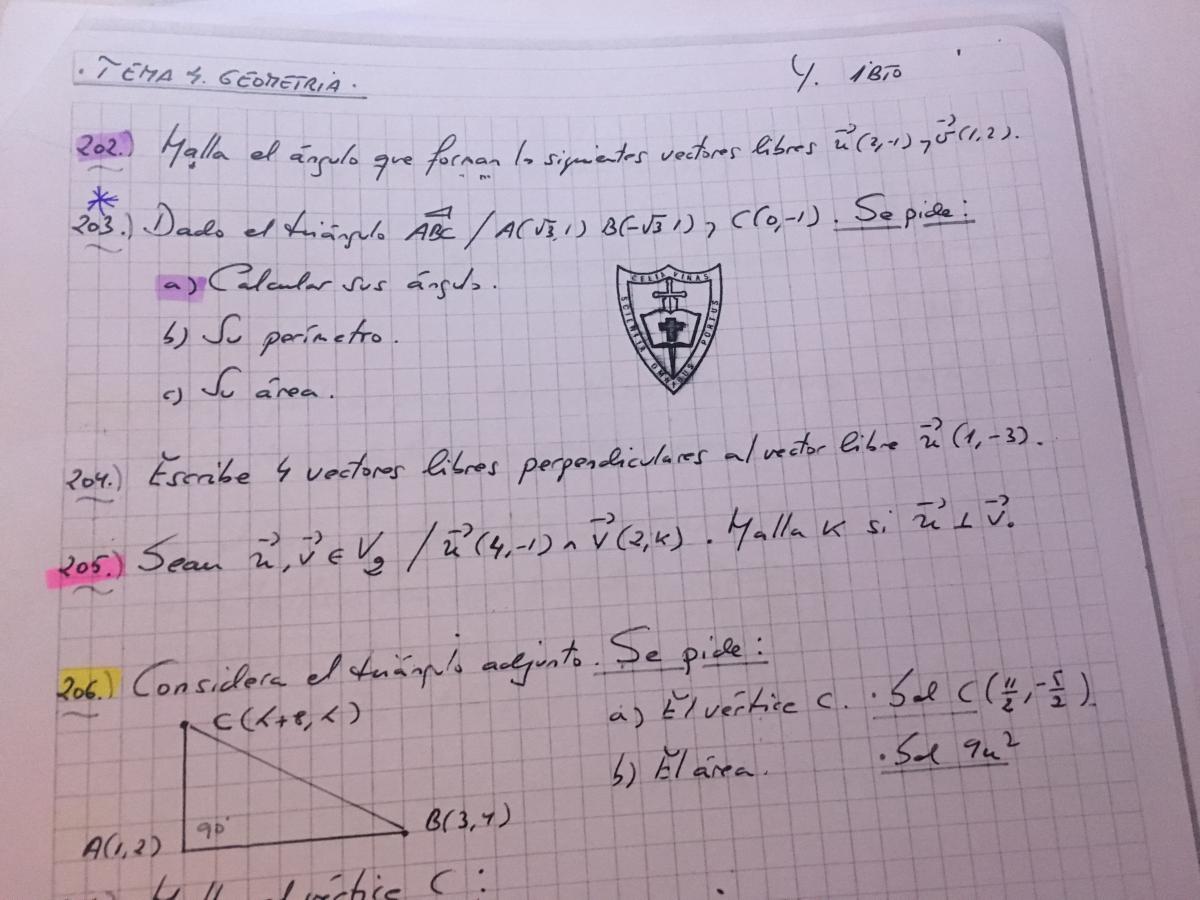 . TEMA 4. GEOMETRIA. 4. 1BTO
202.) Halla el ángulo que forman los siguientes vectores libres u⃗(2,-1) y v⃗(1,2).
* 203.) Dado el triángulo ABC / A(√3,1) B(-√3 1) y C(0,-1). Se pide:
a) Calcular sus ángulos.
CELIA VIÑAS
SCIENTIA OMNIBUS PORTUS
b) Su perímetro.
c) Su área.
204.) Escribe 4 vectores libres perpendiculares al vector libre u⃗(1,-3).
205.) Sean u⃗, v⃗ ∈ V₂ / u⃗(4,-1) ∧ v⃗(2,K). Halla K si u⃗ ⊥ v⃗.
206.) Considera el triángulo adjunto. Se pide:
C(α+8,α) a) El vértice C. · Sol C(11/2, -5/2)
b) El área. · Sol 9u²
90°
A(1,2) B(3,4)
el vértice C: